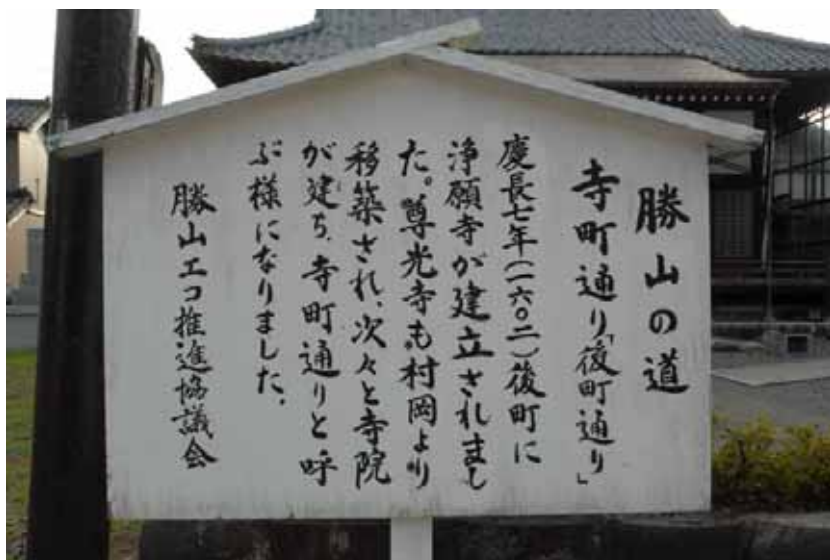 勝山の道
寺町通り「後町通り」
慶長七年(一六〇二)後町に
浄願寺が建立されまし
た。尊光寺も村岡より
移築され、次々と寺院
が建ち、寺町通りと呼
ぶ様になりました。
勝山エコ推進協議会